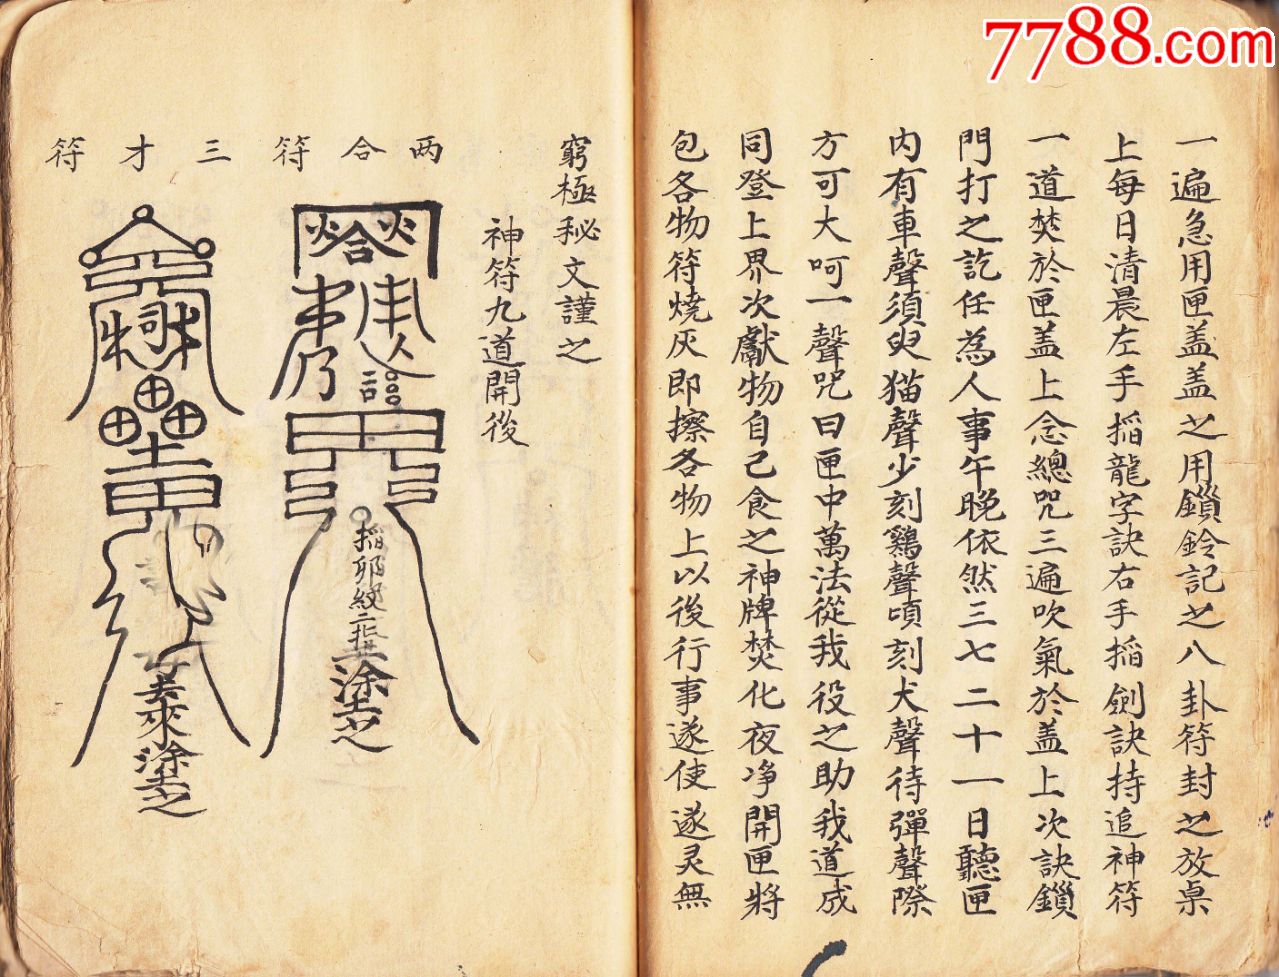 7788.com
一遍急用匣盖盖之用鎖鈴記之八卦符封之放桌
上每日清晨左手搯龍字訣右手搯劍訣持追神符
一道焚於匣盖上念總咒三遍吹氣於盖上次訣鎖
門打之訖任為人事午晚依然三七二十一日聽匣
内有車聲須臾猫聲少刻鷄聲頃刻犬聲待彈聲際
方可大呵一聲咒曰匣中萬法從我役之助我道成
同登上界次獻物自己食之神牌焚化夜净開匣將
包各物符燒灰即擦各物上以後行事遂使遂灵無
窮極秘文謹之
神符九道開後
兩合符
三才符
塗之
來塗之